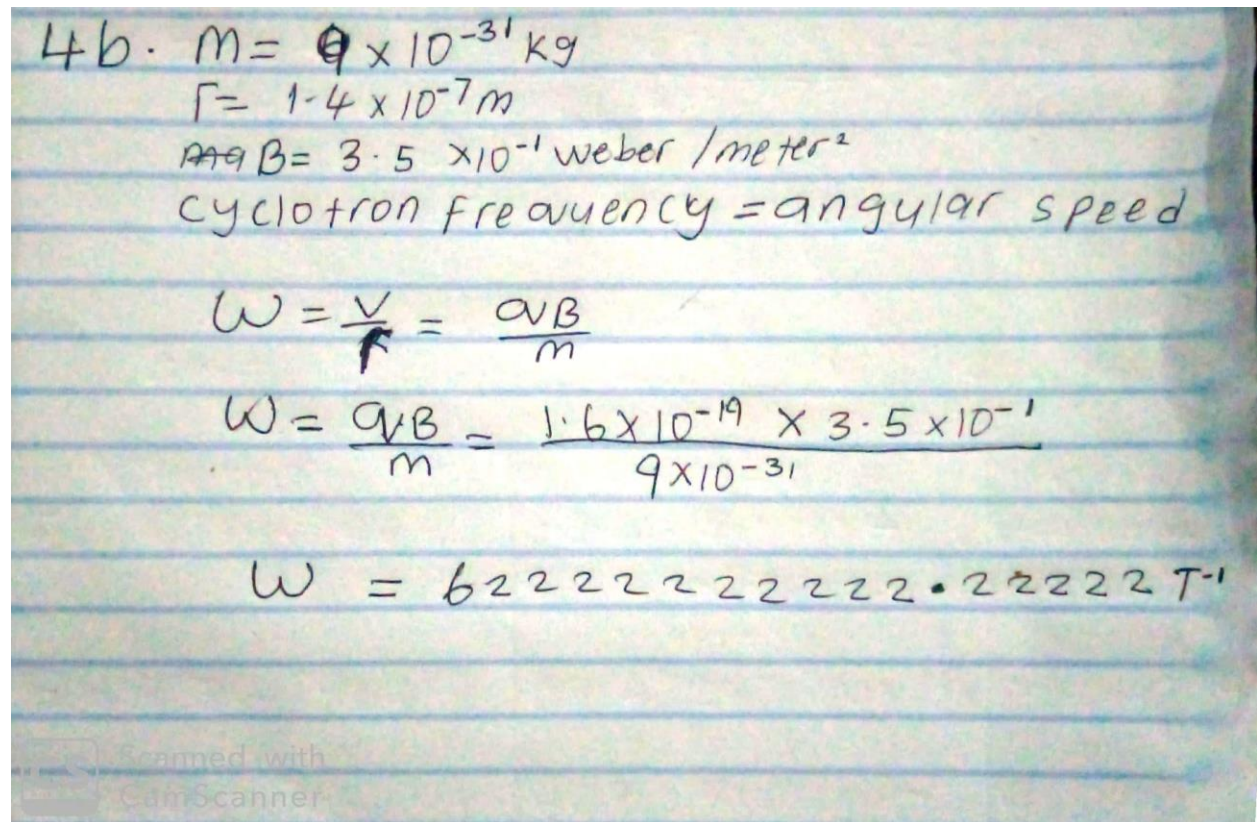 4b. m = 9 x 10⁻³¹ kg
r = 1.4 x 10⁻⁷ m
B = 3.5 x10⁻¹ weber /meter²
cyclotron frequency = angular speed
W = V/r = qB/m
W = qB/m = 1.6x10⁻¹⁹ x 3.5x10⁻¹ / 9x10⁻³¹
W = 62222222222.22222 T⁻¹
Scanned with
CamScanner